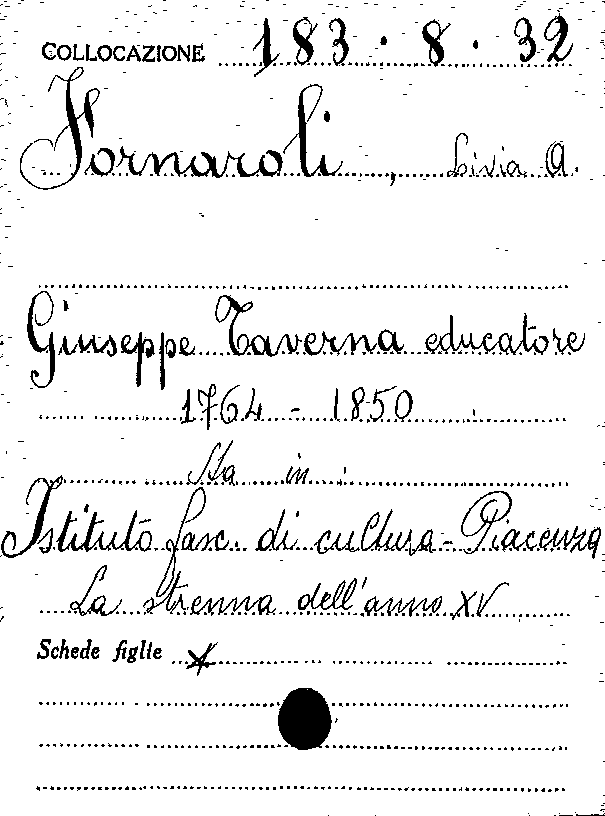 COLLOCAZIONE 183 · 8 · 32
Fornaroli, Livia A.
Giuseppe Taverna educatore
1764 - 1850
Sta in:
Istituto fasc. di cultura - Piacenza
La strenna dell'anno XV
Schede figlie x